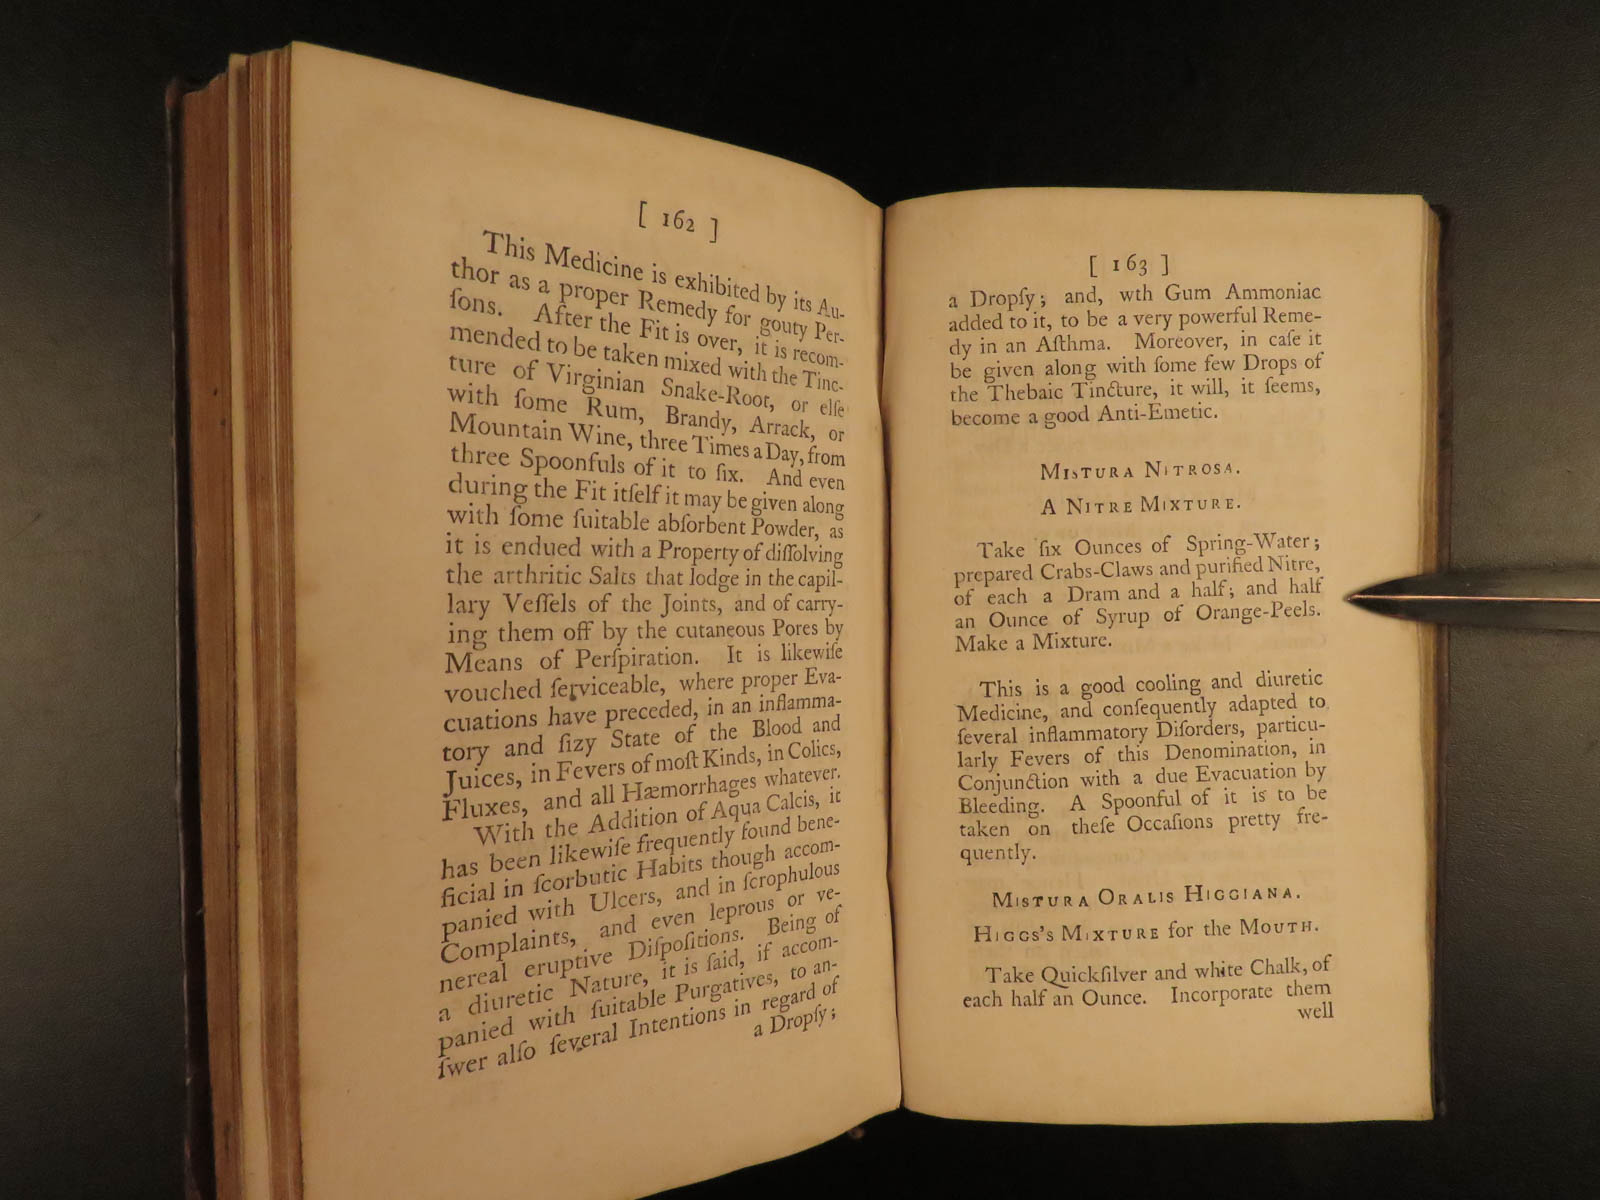 [ 162 ]
This Medicine is exhibited by its Au-
thor as a proper Remedy for gouty Per-
ſons. After the Fit is over, it is recom-
mended to be taken mixed with the Tinc-
ture of Virginian Snake-Root, or elſe
with ſome Rum, Brandy, Arrack, or
Mountain Wine, three Times a Day, from
three Spoonfuls of it to ſix. And even
during the Fit itſelf it may be given along
with ſome ſuitable abſorbent Powder, as
it is endued with a Property of diſſolving
the arthritic Salts that lodge in the capil-
lary Veſſels of the Joints, and of carry-
ing them off by the cutaneous Pores by
Means of Perſpiration. It is likewiſe
vouched ſerviceable, where proper Eva-
cuations have preceded, in an inflamma-
tory and ſizy State of the Blood and
Juices, in Fevers of moſt Kinds, in Colics,
Fluxes, and all Hæmorrhages whatever.
With the Addition of Aqua Calcis, it
has been likewiſe frequently found bene-
ficial in ſcorbutic Habits though accom-
panied with Ulcers, and in ſcrophulous
Complaints, and even leprous or ve-
nereal eruptive Diſpoſitions. Being of
a diuretic Nature, it is ſaid, if accom-
panied with ſuitable Purgatives, to an-
ſwer alſo ſeveral Intentions in regard of
a Dropſy;
[ 163 ]
a Dropſy; and, wth Gum Ammoniac
added to it, to be a very powerful Reme-
dy in an Aſthma. Moreover, in caſe it
be given along with ſome few Drops of
the Thebaic Tincture, it will, it ſeems,
become a good Anti-Emetic.
MISTURA NITROSA.
A NITRE MIXTURE.
Take ſix Ounces of Spring-Water;
prepared Crabs-Claws and purified Nitre,
of each a Dram and a half; and half
an Ounce of Syrup of Orange-Peels.
Make a Mixture.
This is a good cooling and diuretic
Medicine, and conſequently adapted to
ſeveral inflammatory Diſorders, particu-
larly Fevers of this Denomination, in
Conjunction with a due Evacuation by
Bleeding. A Spoonful of it is to be
taken on theſe Occaſions pretty fre-
quently.
MISTURA ORALIS HIGGIANA.
HIGGS'S MIXTURE for the MOUTH.
Take Quickſilver and white Chalk, of
each half an Ounce. Incorporate them
well